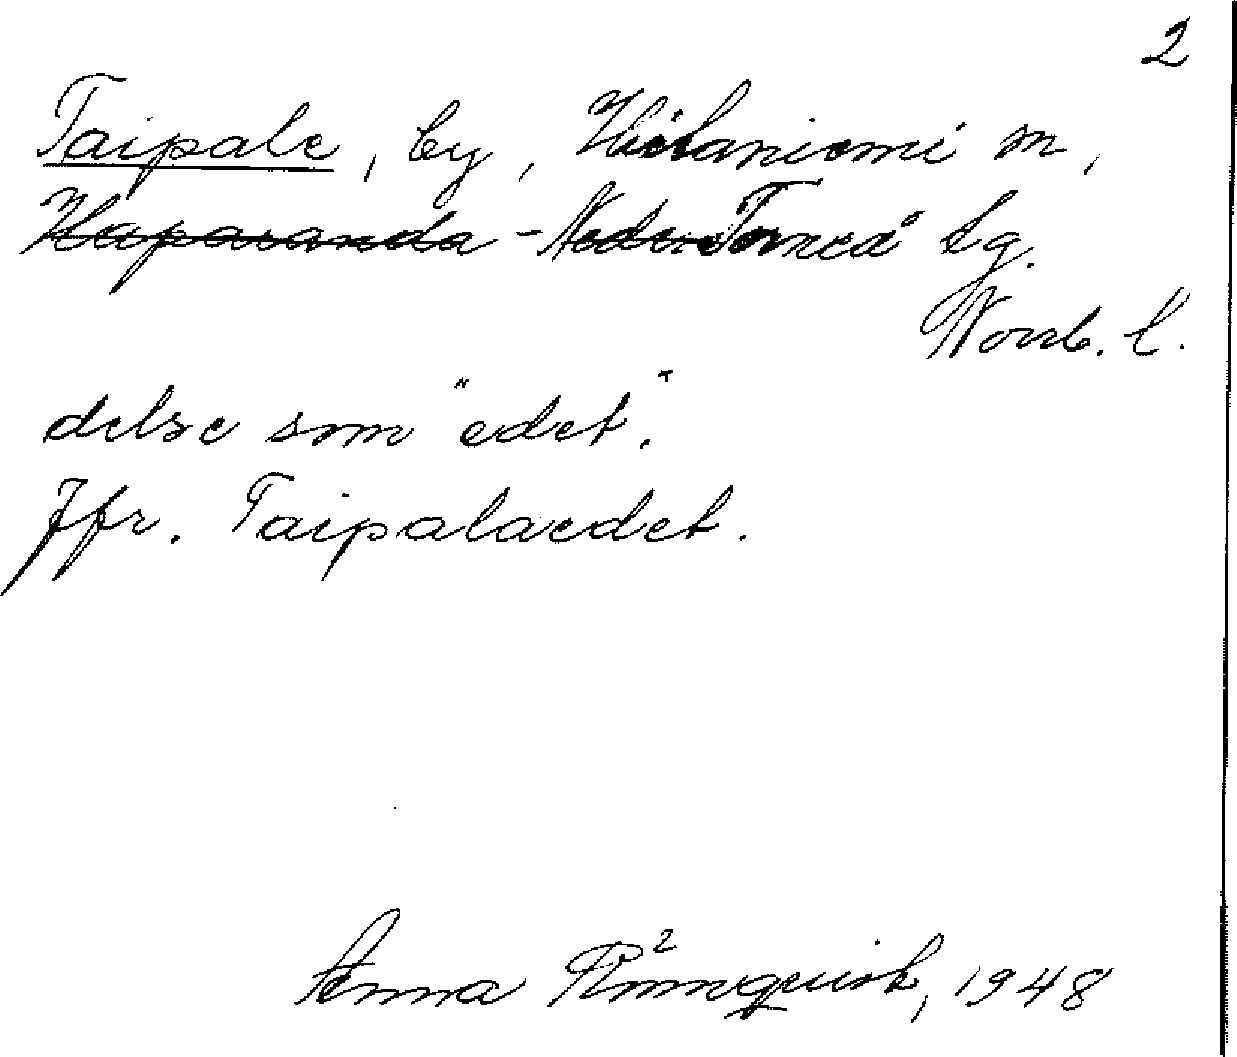 2
Taipale, by, Hietaniemi sn,
Haparanda - Neder Torneå tg.
Norrb. l.
delse som "edet".
Jfr. Taipalaedet.
Anna Rönnquist, 1948